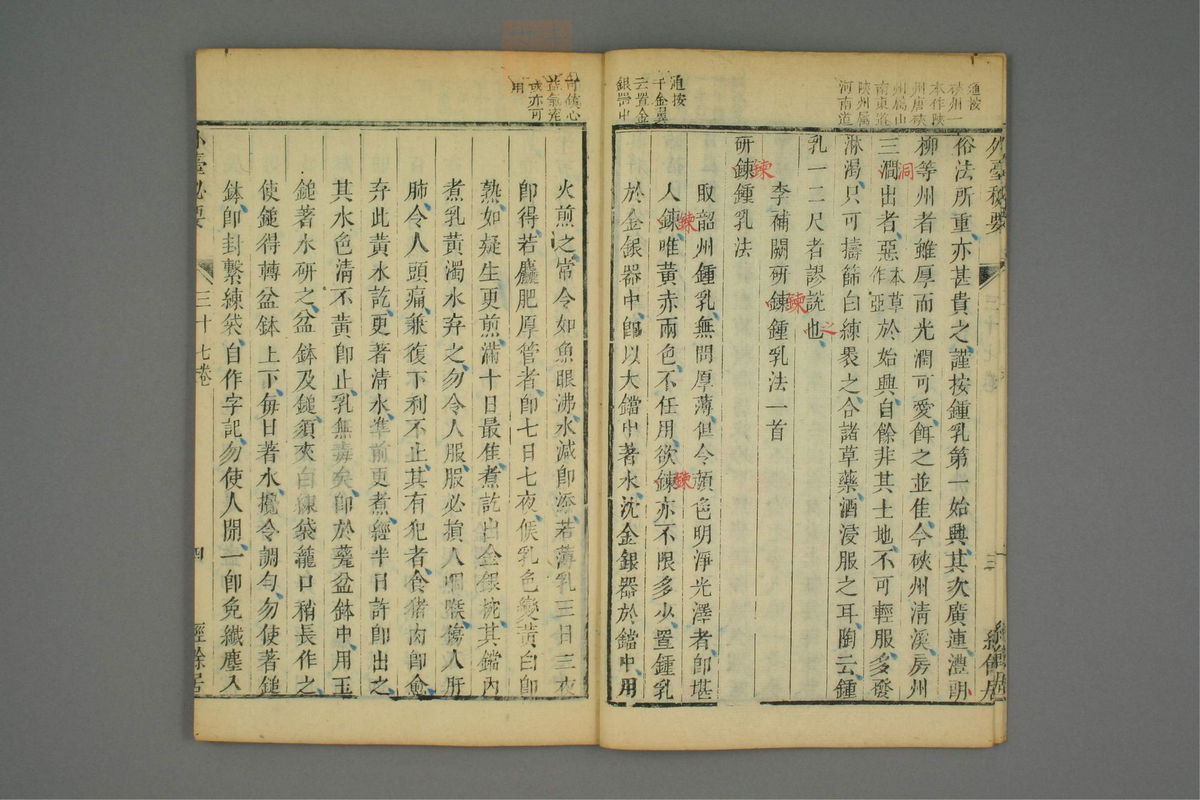 通按
硤州一
本作陜
州唐硤
州屬山
南東道
陜州屬
河南道
外臺秘要
三十七卷
三
經餘居
俗法所重亦甚貴之謹按鍾乳第一始興其次廣連澧朗
柳等州者雖厚而光潤可愛餌之並佳今硤州清溪房州
三澗出者惡本草作亞於始興自餘非其土地不可輕服多發
洞
淋渴只可擣篩白練裹之合諸草藥酒浸服之耳陶云鍾
乳一二尺者謬說也
之
李補闕研鍊鍾乳法一首
鍊
研鍊鍾乳法
鍊
取韶州鍾乳無問厚薄但令顏色明淨光澤者即堪
人鍊唯黃赤兩色不任用欲鍊亦不限多少置鍾乳
鍊
鍊
於金銀器中即以大鐺中著水沈金銀器於鐺中用
通按
千金翼
云置金
銀器中
可鎮心
益氣充
或亦可
用
火煎之常令如魚眼沸水減即添若薄乳三日三夜
即得若麤肥厚管者即七日七夜候乳色變黃白即
熟如疑生更煎滿十日最佳煮訖出金銀椀其鐺內
煮乳黃濁水弃之勿令人服服必損人咽喉傷人肝
肺令人頭痛兼復下利不止其有犯者食猪肉即愈
弃此黃水訖更著清水準前更煮經半日許即出之
其水色清不黃即止乳無毒矣即於甆盆鉢中用玉
鎚著水研之盆鉢及鎚須夾白練袋籠口稍長作之
使鎚得轉盆鉢上下每日著水攪令調勻勿使著鎚
鉢即封繫練袋自作字記勿使人開一即免纖塵入
外臺秘要
三十七卷
四
經餘居